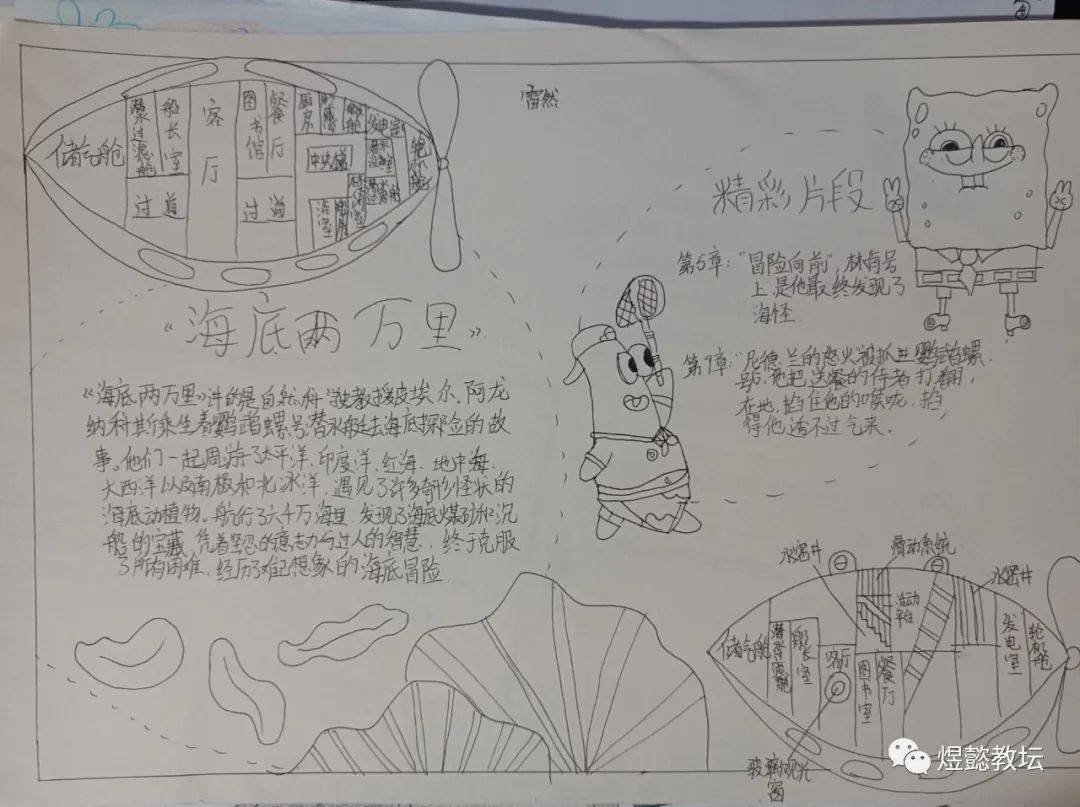 雷然
储气舱
潜水过滤舱
船长室
客厅
图书馆
餐厅
厨房
发电室
轮机舱
中央楼
过道
过道
浴室
《海底两万里》
《海底两万里》讲的是自然科学教授皮埃尔.阿龙
纳科斯乘坐着鹦鹉螺号潜水艇去海底探险的故
事。他们一起周游了太平洋、印度洋、红海、地中海、
大西洋以及南极和北冰洋,遇见了许多奇形怪状的
海底动植物。航行了六千万海里,发现了海底煤矿和沉
船的宝藏,凭着坚强的意志力与过人的智慧,终于克服
了所有困难,经历了难已想象的海底冒险
精彩片段
第6章:"冒险向前",林肯号
上是他最终发现了
海怪
第7章:"尼德.兰的怒火"被抓进鹦鹉螺
号后,他把送餐的侍者打翻
在地,掐住他的喉咙,掐
得他透不过气来.
水密井
滑动系统
水密井
活动平台
储气舱
船长室
客厅
图书室
餐厅
发电室
轮机舱
玻璃观光
窗
煜懿教坛